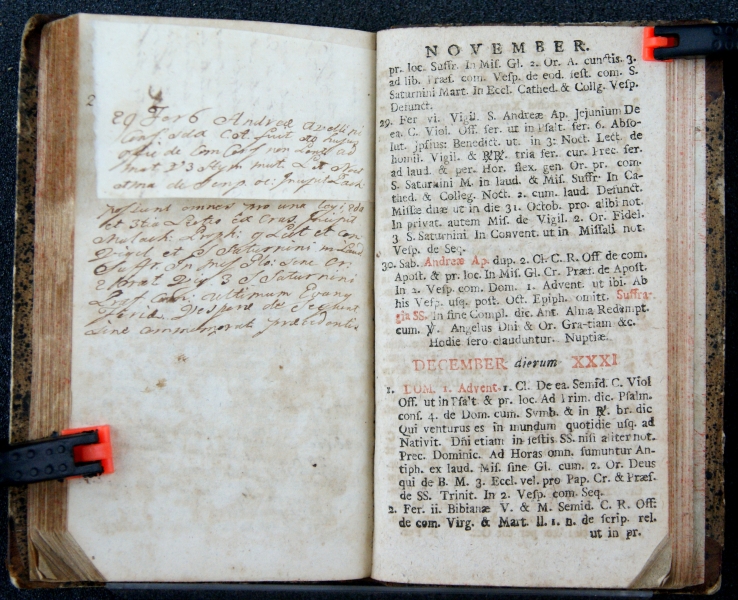 2
29 Fer 6 Andreæ Avellini
Conf.
offic de Com Conf non
mut
et
omnes pro una
et 3tio Extra
Malach: Proph:
et S Saturnini in Laud
Suffr. in Miss Glo: sine Or:
2 3 S Saturnini
ultimum Evang
Feriæ Vesperæ de Sequenti
sine commemorat præcedentis
NOVEMBER.
pr. loc. Suffr. In Miſ. Gl. 2. Or. A. cunctis. 3.
ad lib. Præf. com. Veſp. de eod. feſt. com. S.
Saturnini Mart. In Eccl. Cathed. & Collg. Veſp.
Defunct.
29. Fer vi. Vigil. S. Andreæ Ap. Jejunium De
ea. C. Viol. Off. fer. ut in Pſalt. fer. 6. Abſo-
lut. Ipſius: Benedict. ut. in 3: Noct. Lect. de
homil. Vigil. & ℟℟. tria fer. cur. Prec. fer.
ad laud. & per. Hor. flex. gen. Or. pr. com-
S. Saturnini M. in laud. & Miſ. Suffr. In Ca-
thed. & Colleg. Noct. 2. cum. laud. Defunct.
Miſſæ duæ ut in die 31. Octob. pro. alibi not.
In privat. autem Miſ. de Vigil. 2. Or. Fidel.
3. S. Saturnini. In Convent. ut in Miſſali not.
Veſp. de Seq.
30. Sab. Andreæ Ap. dup. 2. Cl. C. R. Off de com.
Apoſt. & pr. loc. In Miſ Gl. Cr. Præf. de Apoſt.
In 2. Veſp. com. Dom. 1. Advent. ut ibi. Ab
his Veſp. uſq. poſt. Oct. Epiph. omitt. Suffra-
gia SS. In fine Compl. dic. Ant. Alma Redempt.
cum. ℣. Angelus Dni & Or. Gra-tiam &c.
Hodie ſero clauduntur. Nuptiæ.
DECEMBER dierum XXXI
1. DOM. 1. Advent. 1. Cl. De ea. Semid. C. Viol
Off. ut in Pſalt & pr. loc. Ad Prim. dic. Pſalm.
conſ. 4. de Dom. cum. Symb. & in ℟. br. dic
Qui venturus es in mundum quotidie uſq. ad
Nativit. Dñi etiam in feſtis SS. niſi aliter not.
Prec. Dominic. Ad Horas omn. ſumuntur An-
tiph. ex laud. Miſ. ſine Gl. cum. 2. Or. Deus
qui de B. M. 3. Eccl. vel. pro Pap. Cr. & Præf.
de SS. Trinit. In 2. Veſp. com. Seq.
2. Fer. ii. Bibianæ V. & M. Semid. C. R. Off:
de com. Virg. & Mart. ll. 1. n. de ſcrip. rel.
ut in pr.